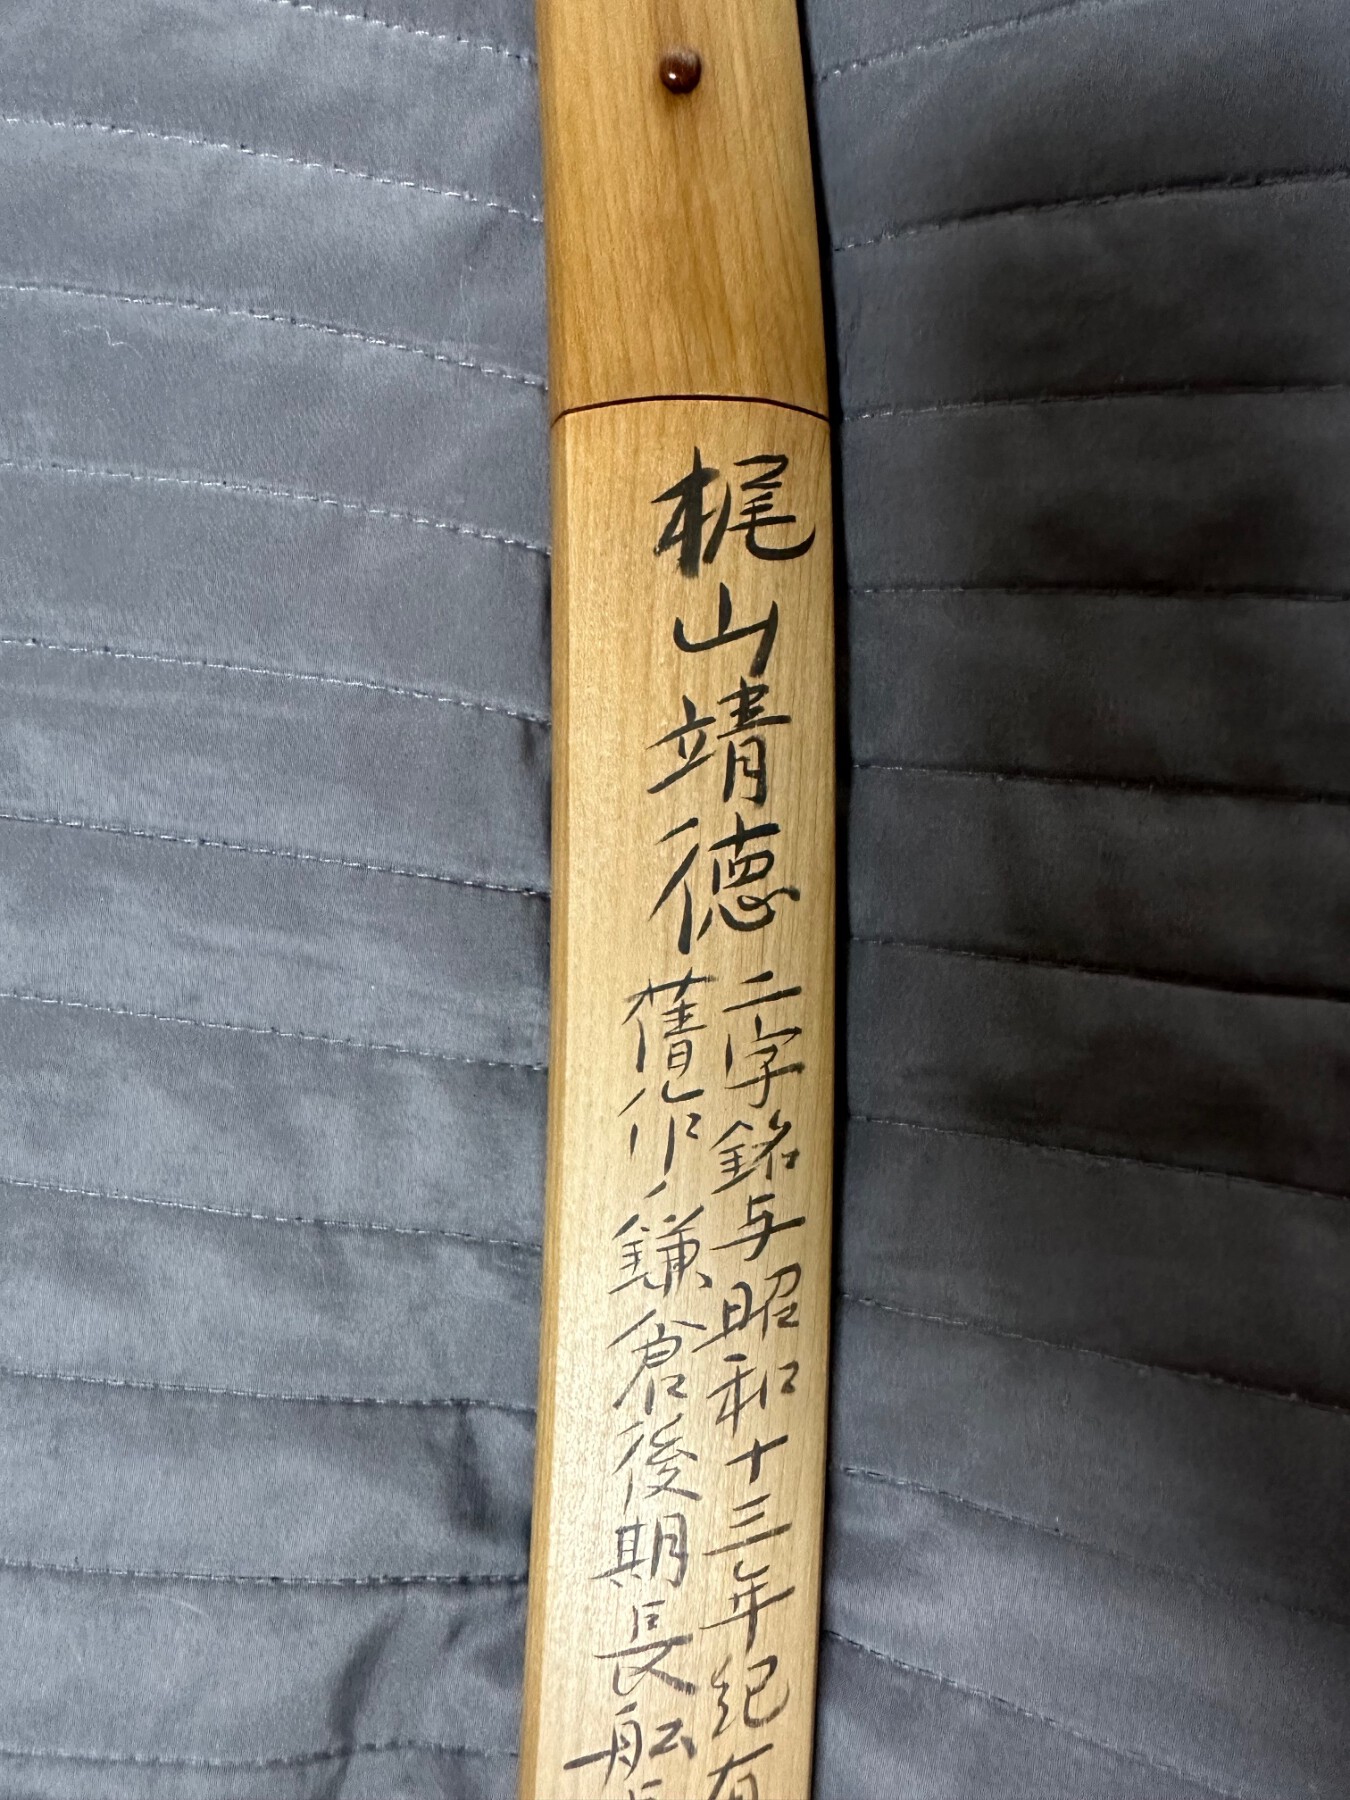 梶山靖徳
二字銘与昭和十三年紀有
傑作ノ鎌倉後期長船